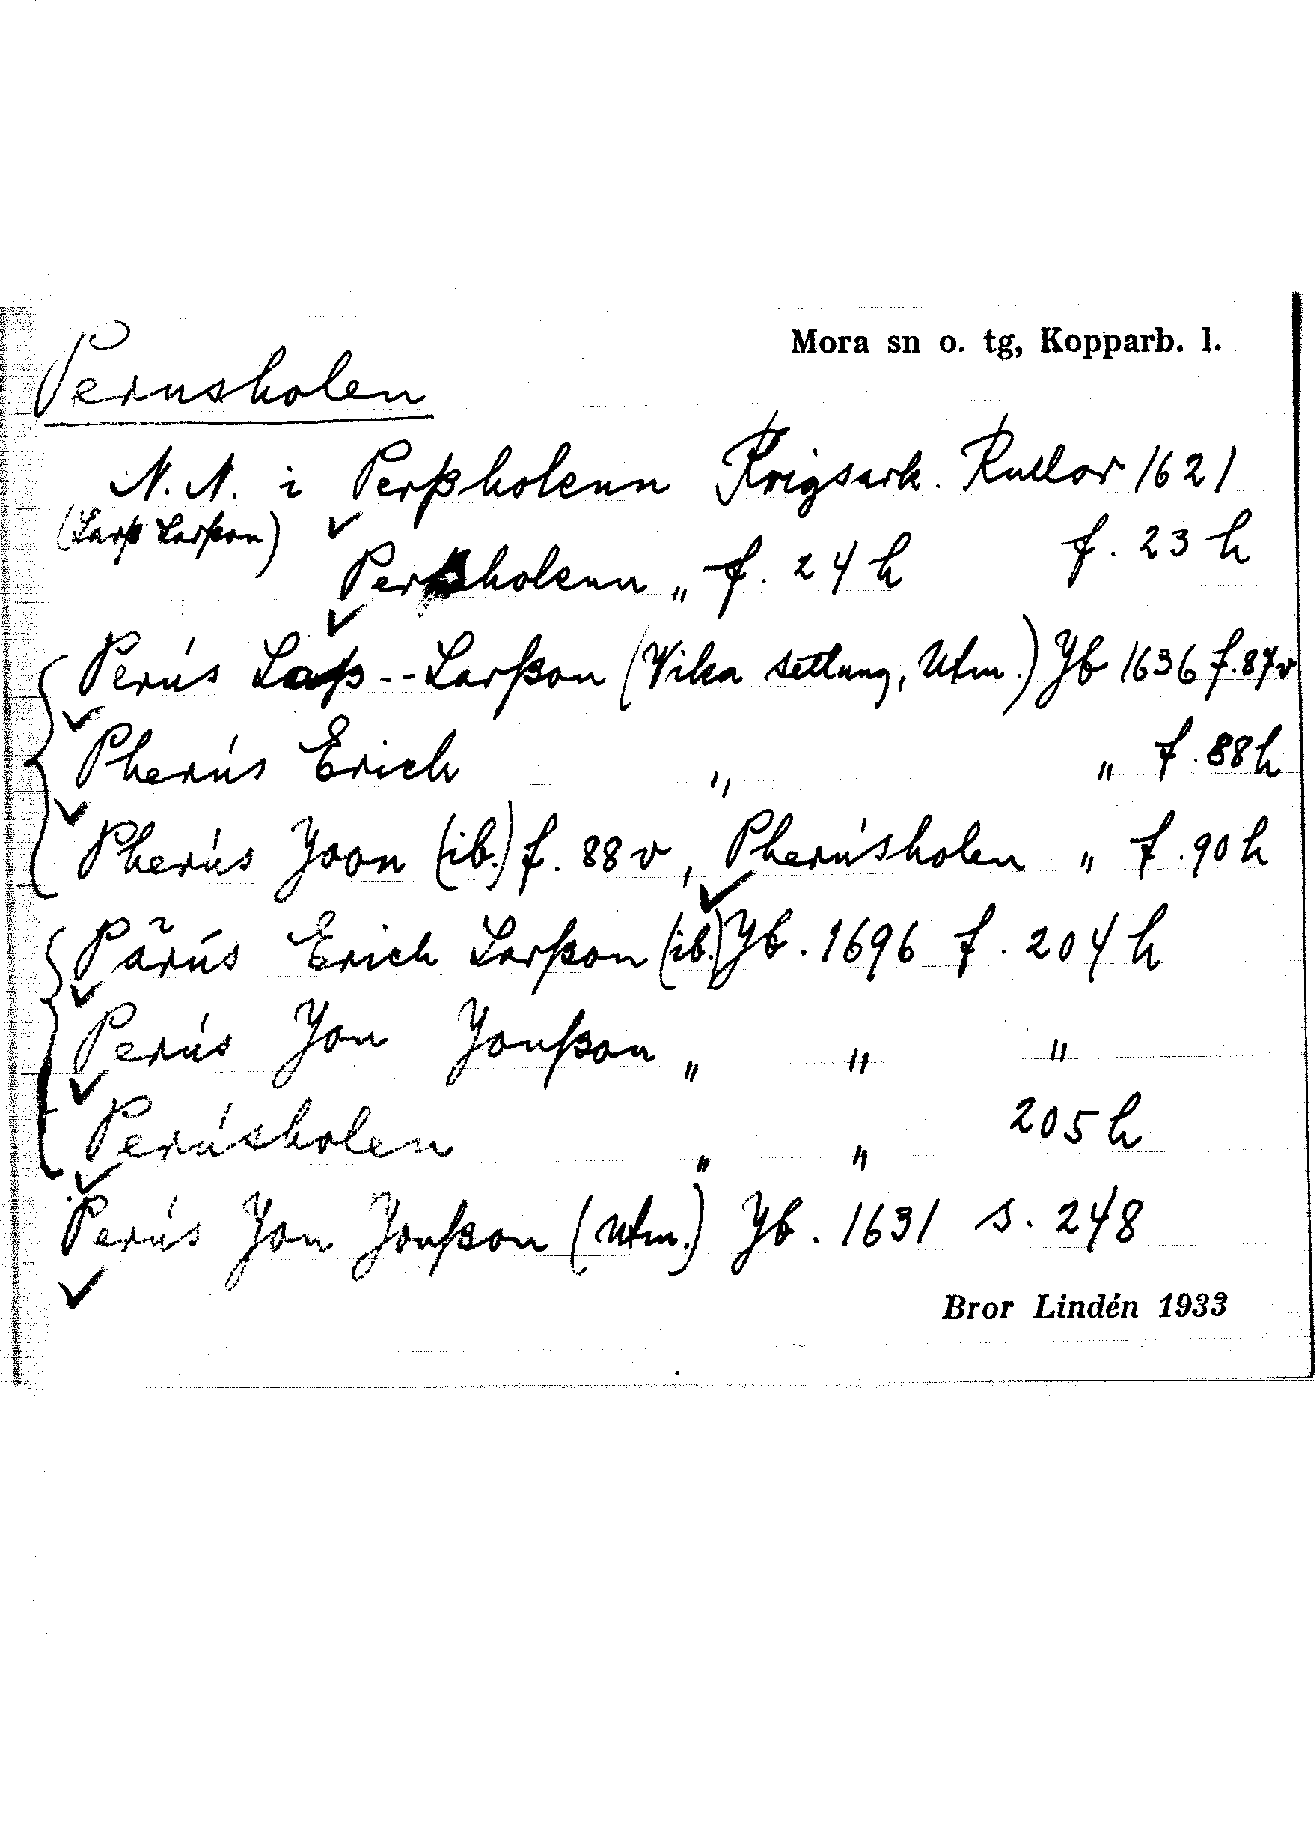 Mora sn o. tg, Kopparb. l.
Perusholen
N. N. i Perßholenn Krigsark. Rullor 1621
(Larß Larßon) f. 23 h
Perßholenn „ f. 24 h
Perús Laß -- Larßon (Vika settung, Utm.) Jb 1636 f. 87v
Pherús Erich „ „ f. 88h
Pherús Joon (ib.) f. 88 v, Pherúsholen „ f. 90 h
Pärús Erich Larßon (ib.) Jb. 1696 f. 204 h
Perús Jon Jonßon „ „ „
Perúsholen „ „ 205 h
Perús Jon Jonßon (Utm.) Jb. 1631 s. 248
Bror Lindén 1933